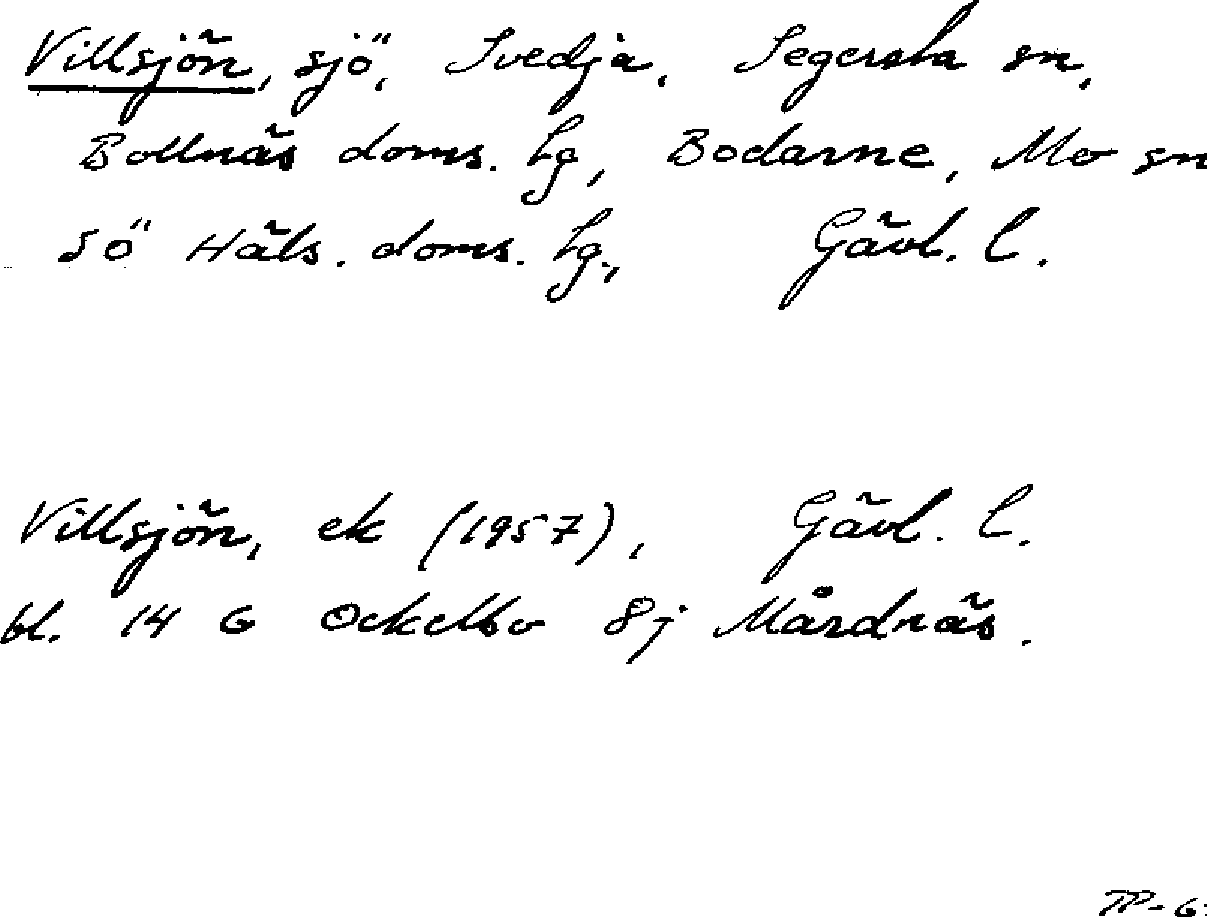 Villsjön, sjö, Svedja, Segersta sn,
Bollnäs doms. lg, Bodarne, Mo sn
Sö Häls. doms. lg., Gävl. l.
Villsjön, ek (1957), Gävl. l.
bl. 14 G Ockelbo 8j Mårdnäs.